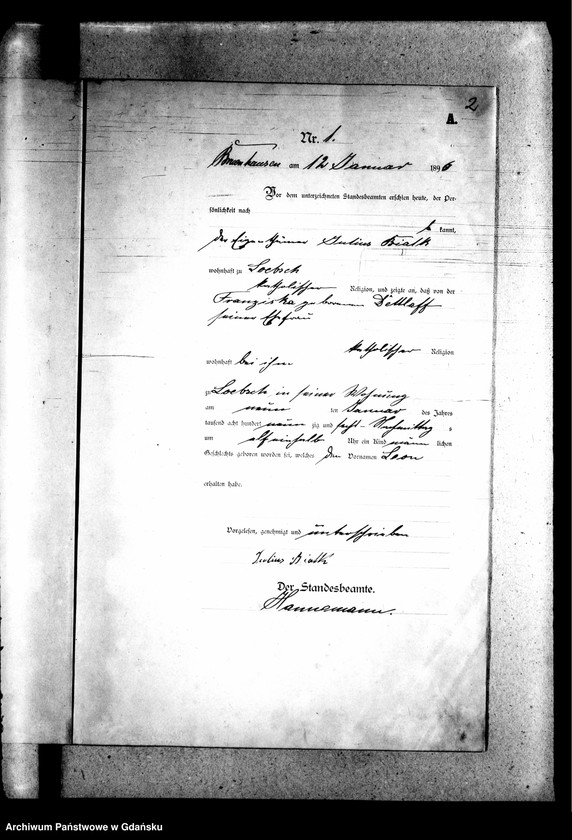 2
A.
Nr. 1.
am 12 Januar 1896
Vor dem unterzeichneten Standesbeamten erschien heute, der Per-
sönlichkeit nach
kannt,
der Eigenthümer Julius Bialk
wohnhaft zu Loebsch
katholischer Religion, und zeigte an, daß von der
Franziska geborenen Dettlaff
seiner Ehefrau
katholischer Religion
wohnhaft bei ihm
zu Loebsch in seiner Wohnung
am neun ten Januar des Jahres
tausend acht hundert neun zig und sechs Nachmittag s
um elf einhalb Uhr ein Kind männ lichen
Geschlechts geboren worden sei, welches den Vornamen Leon
erhalten habe.
Vorgelesen, genehmigt und unterschrieben
Julius Bialk
Der Standesbeamte.
Hannemann.
Archiwum Państwowe w Gdańsku